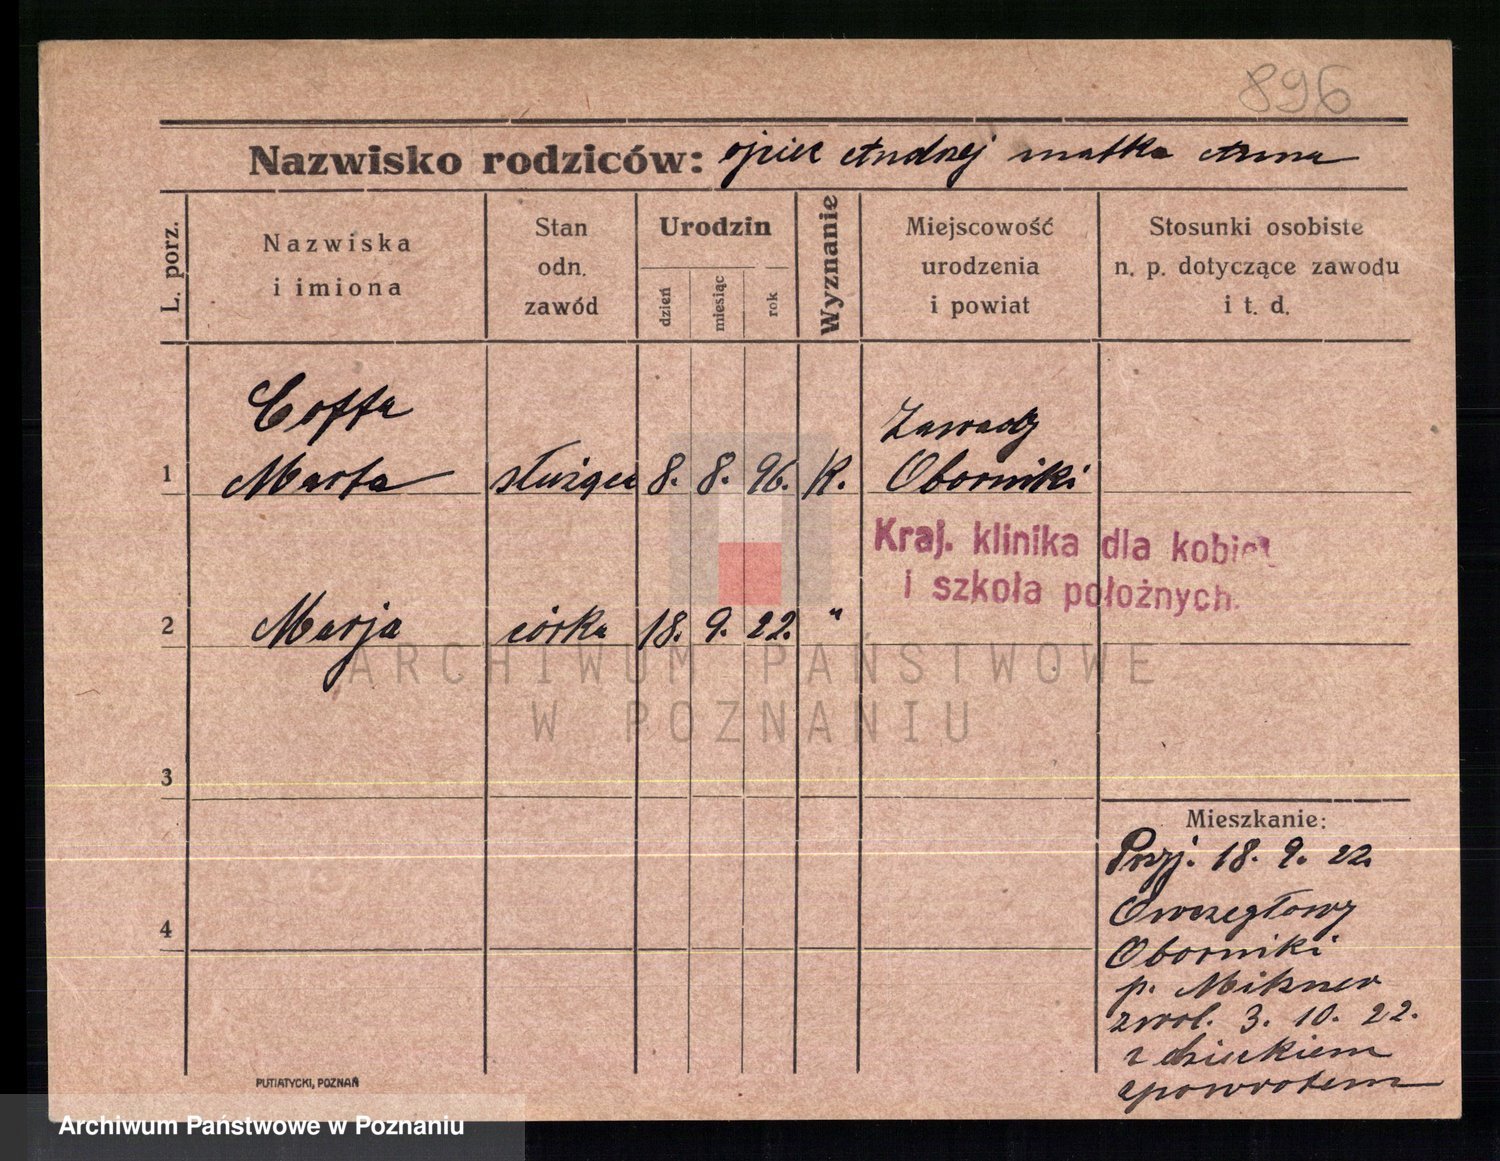 896
Nazwisko rodziców: ojciec Andrzej matka Anna
L. porz.
Nazwiska
i imiona
Stan
odn.
zawód
Urodzin
dzień
miesiąc
rok
Wyznanie
Miejscowość
urodzenia
i powiat
Stosunki osobiste
n. p. dotyczące zawodu
i t. d.
Coffa
Zawady
1 Marta służąca 8. 8. 96. K. Oborniki
Kraj. klinika dla kobiet
i szkoła położnych.
2 Marja córka 18. 9. 22. "
ARCHIWUM PAŃSTWOWE
W POZNANIU
3
Mieszkanie:
Przj. 18. 9. 22.
Owczegłowy
4
Oborniki
p.
zwol. 3. 10. 22.
z dzieckiem
zpowrotem
PUTIATYCKI, POZNAŃ
Archiwum Państwowe w Poznaniu